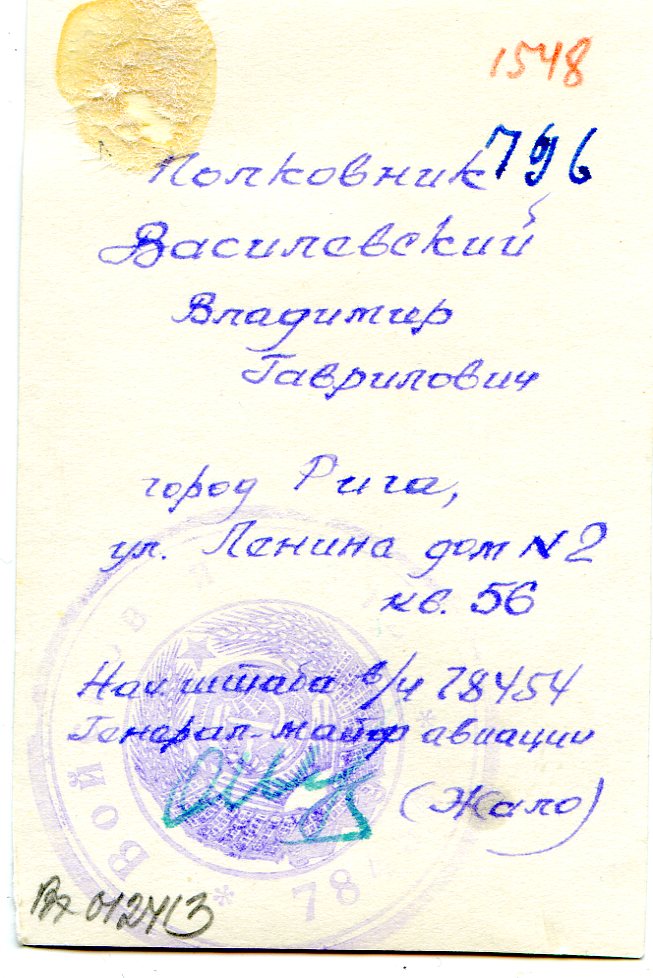 1548
796
Полковник
Василевский
Владимир
Гаврилович
город Рига,
ул. Ленина дом N 2
кв. 56
Нач штаба в/ч 78454
Генерал-майор авиации
(Жало)
Вх 012413
ВОЙ
78